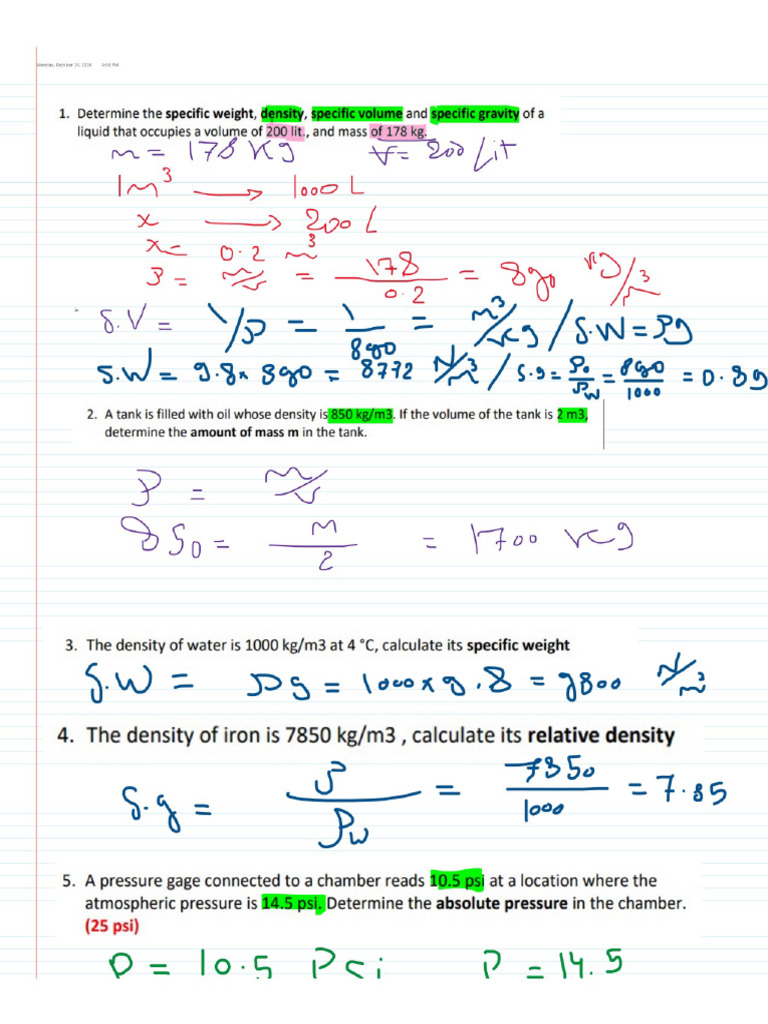 1. Determine the specific weight, density, specific volume and specific gravity of a
liquid that occupies a volume of 200 lit., and mass of 178 kg.
m = 178 Kg V = 200 Lit
1m³ → 1000 L
x → 200 L
x = 0.2 m³
ρ = m/v = 178/0.2 = 890 kg/m³
S.V = 1/ρ = 1/890 = m³/kg / S.W = ρg
S.W = 9.8 × 890 = 8772 N/m³ / S.g = ρo/ρw = 890/1000 = 0.89
2. A tank is filled with oil whose density is 850 kg/m3. If the volume of the tank is 2 m3,
determine the amount of mass m in the tank.
ρ = m/v
850 = m/2 = 1700 kg
3. The density of water is 1000 kg/m3 at 4 °C, calculate its specific weight
S.W = ρg = 1000 × 9.8 = 9800 N/m³
4. The density of iron is 7850 kg/m3 , calculate its relative density
S.g = ρ/ρw = 7850/1000 = 7.85
5. A pressure gage connected to a chamber reads 10.5 psi at a location where the
atmospheric pressure is 14.5 psi. Determine the absolute pressure in the chamber.
(25 psi)
P = 10.5 Psi P = 14.5